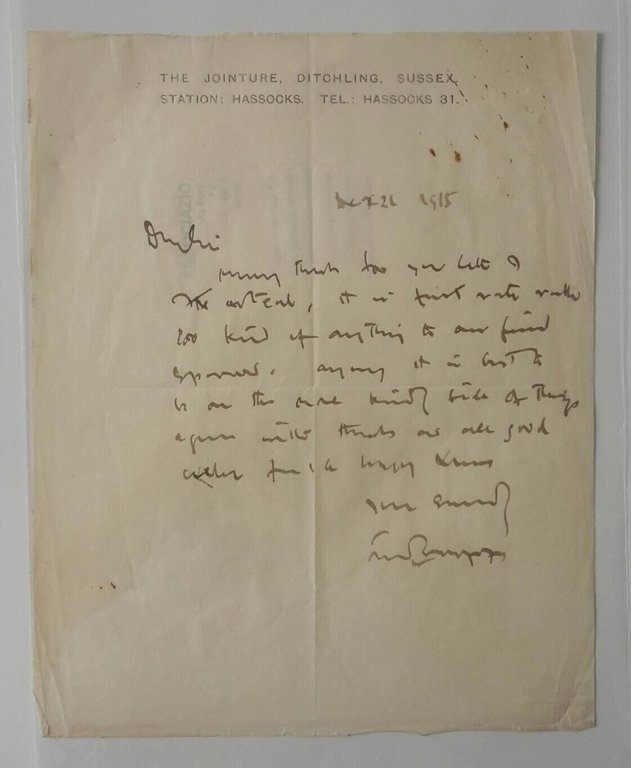 THE JOINTURE, DITCHLING, SUSSEX,
STATION: HASSOCKS. TEL.: HASSOCKS 31.
Dec 21 1915
Dear Sir
many thanks for your letter &
The article, it is first rate rather
too kind if anything to our friend
anyway it is best to
be on the more kindly side of things
again with thanks and all good
wishes for a happy Xmas
yours sincerely
Frank Brangwyn